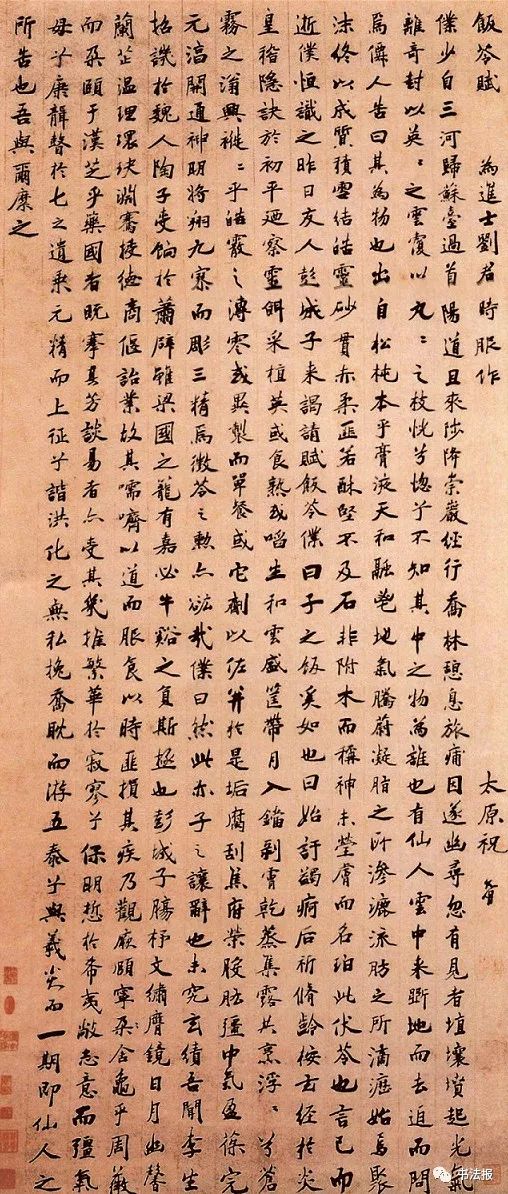 飯苓賦 為進士劉君時服作 太原祝
僕少自三河歸蘇臺過首陽道且來陟降崇巖經行喬林憩息旅痡因遂幽尋忽有見者埴壤墳起光氣
離奇封以英〻之雲覆以丸〻之枝恍兮惚兮不知其中之物為誰也有仙人雲中来斸地而去追而問
焉僊人告曰其為物也出自松杶本乎膏液天和融鬯地氣騰蔚凝脂之所滲漉流肪之所滴瀝始焉聚
沫終以成質積雪結皓靈砂貫赤柔匪若酥堅不及石非附木而稱神未瑩膚而名珀此伏苓也言已而
逝僕恒識之昨日友人彭城子来謁請賦飯苓僕曰子之飯奚如也曰始訝蠲痾后祈脩齡桉玄經於炎
皇稽隱訣於初平廼察靈餌采植英或食熟或啗生和雲盛筐帶月入鐺剥膏乾蒸集露共烹浮〻兮蒼
霧之滃興褷〻乎皓霰之溥零或異製而單餐或它劑以佐并於是垢腐刮焦府榮 彊中氣盈葆完
元 關通神明將翔九寨而彫三精焉徵苓之勲亦竑哉僕曰然此亦子之讓辭也未究玄績吾聞李生
招譏於魏人陶子受餉於蕭辟雖梁國之寵有嘉必牛谿之負斯極也彭城子腸杼文繡膺鏡日月幽馨
蘭芷温理環玦淵騫挍德商偃詒業故其嚅嚌以道而服食以時匪損其疾乃觀厥頤寧朶舍龜乎周薇
而朶頤于漢芝乎藥國者既搴其芳談易者亦受其幾摧繁華於寂寥兮保明悊於希夷敞志意而彊氣
母兮康 聲於七之遺乗元精而上征兮諧洪化之無私挽喬耽而游五泰兮與羲炎而一期即仙人之
所告也吾與爾糜之
书法报